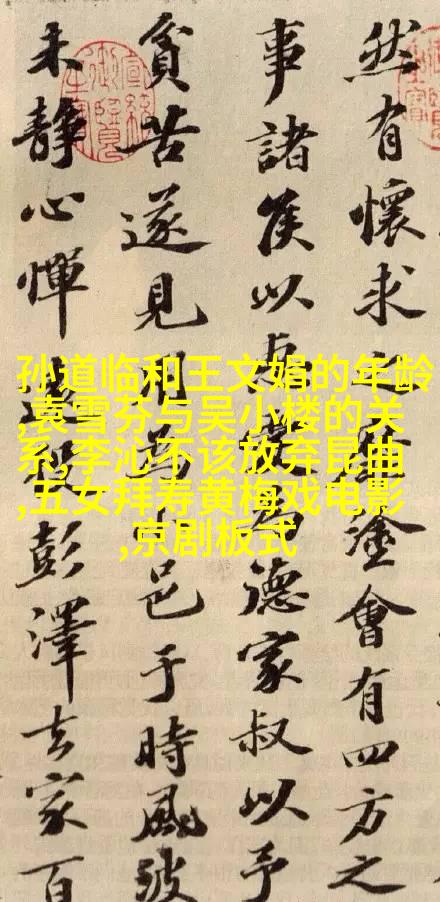 然有懷求塗會有四方之
事諸侯以德家叔以予
貧苦遂見用為邑于時風波
未靜心憚遠彭澤去家百
孙道临和王文娟的年龄
,袁雪芬与吴小楼的关
系,李沁不该放弃昆曲
,五女拜寿黄梅戏电影
,京剧板式